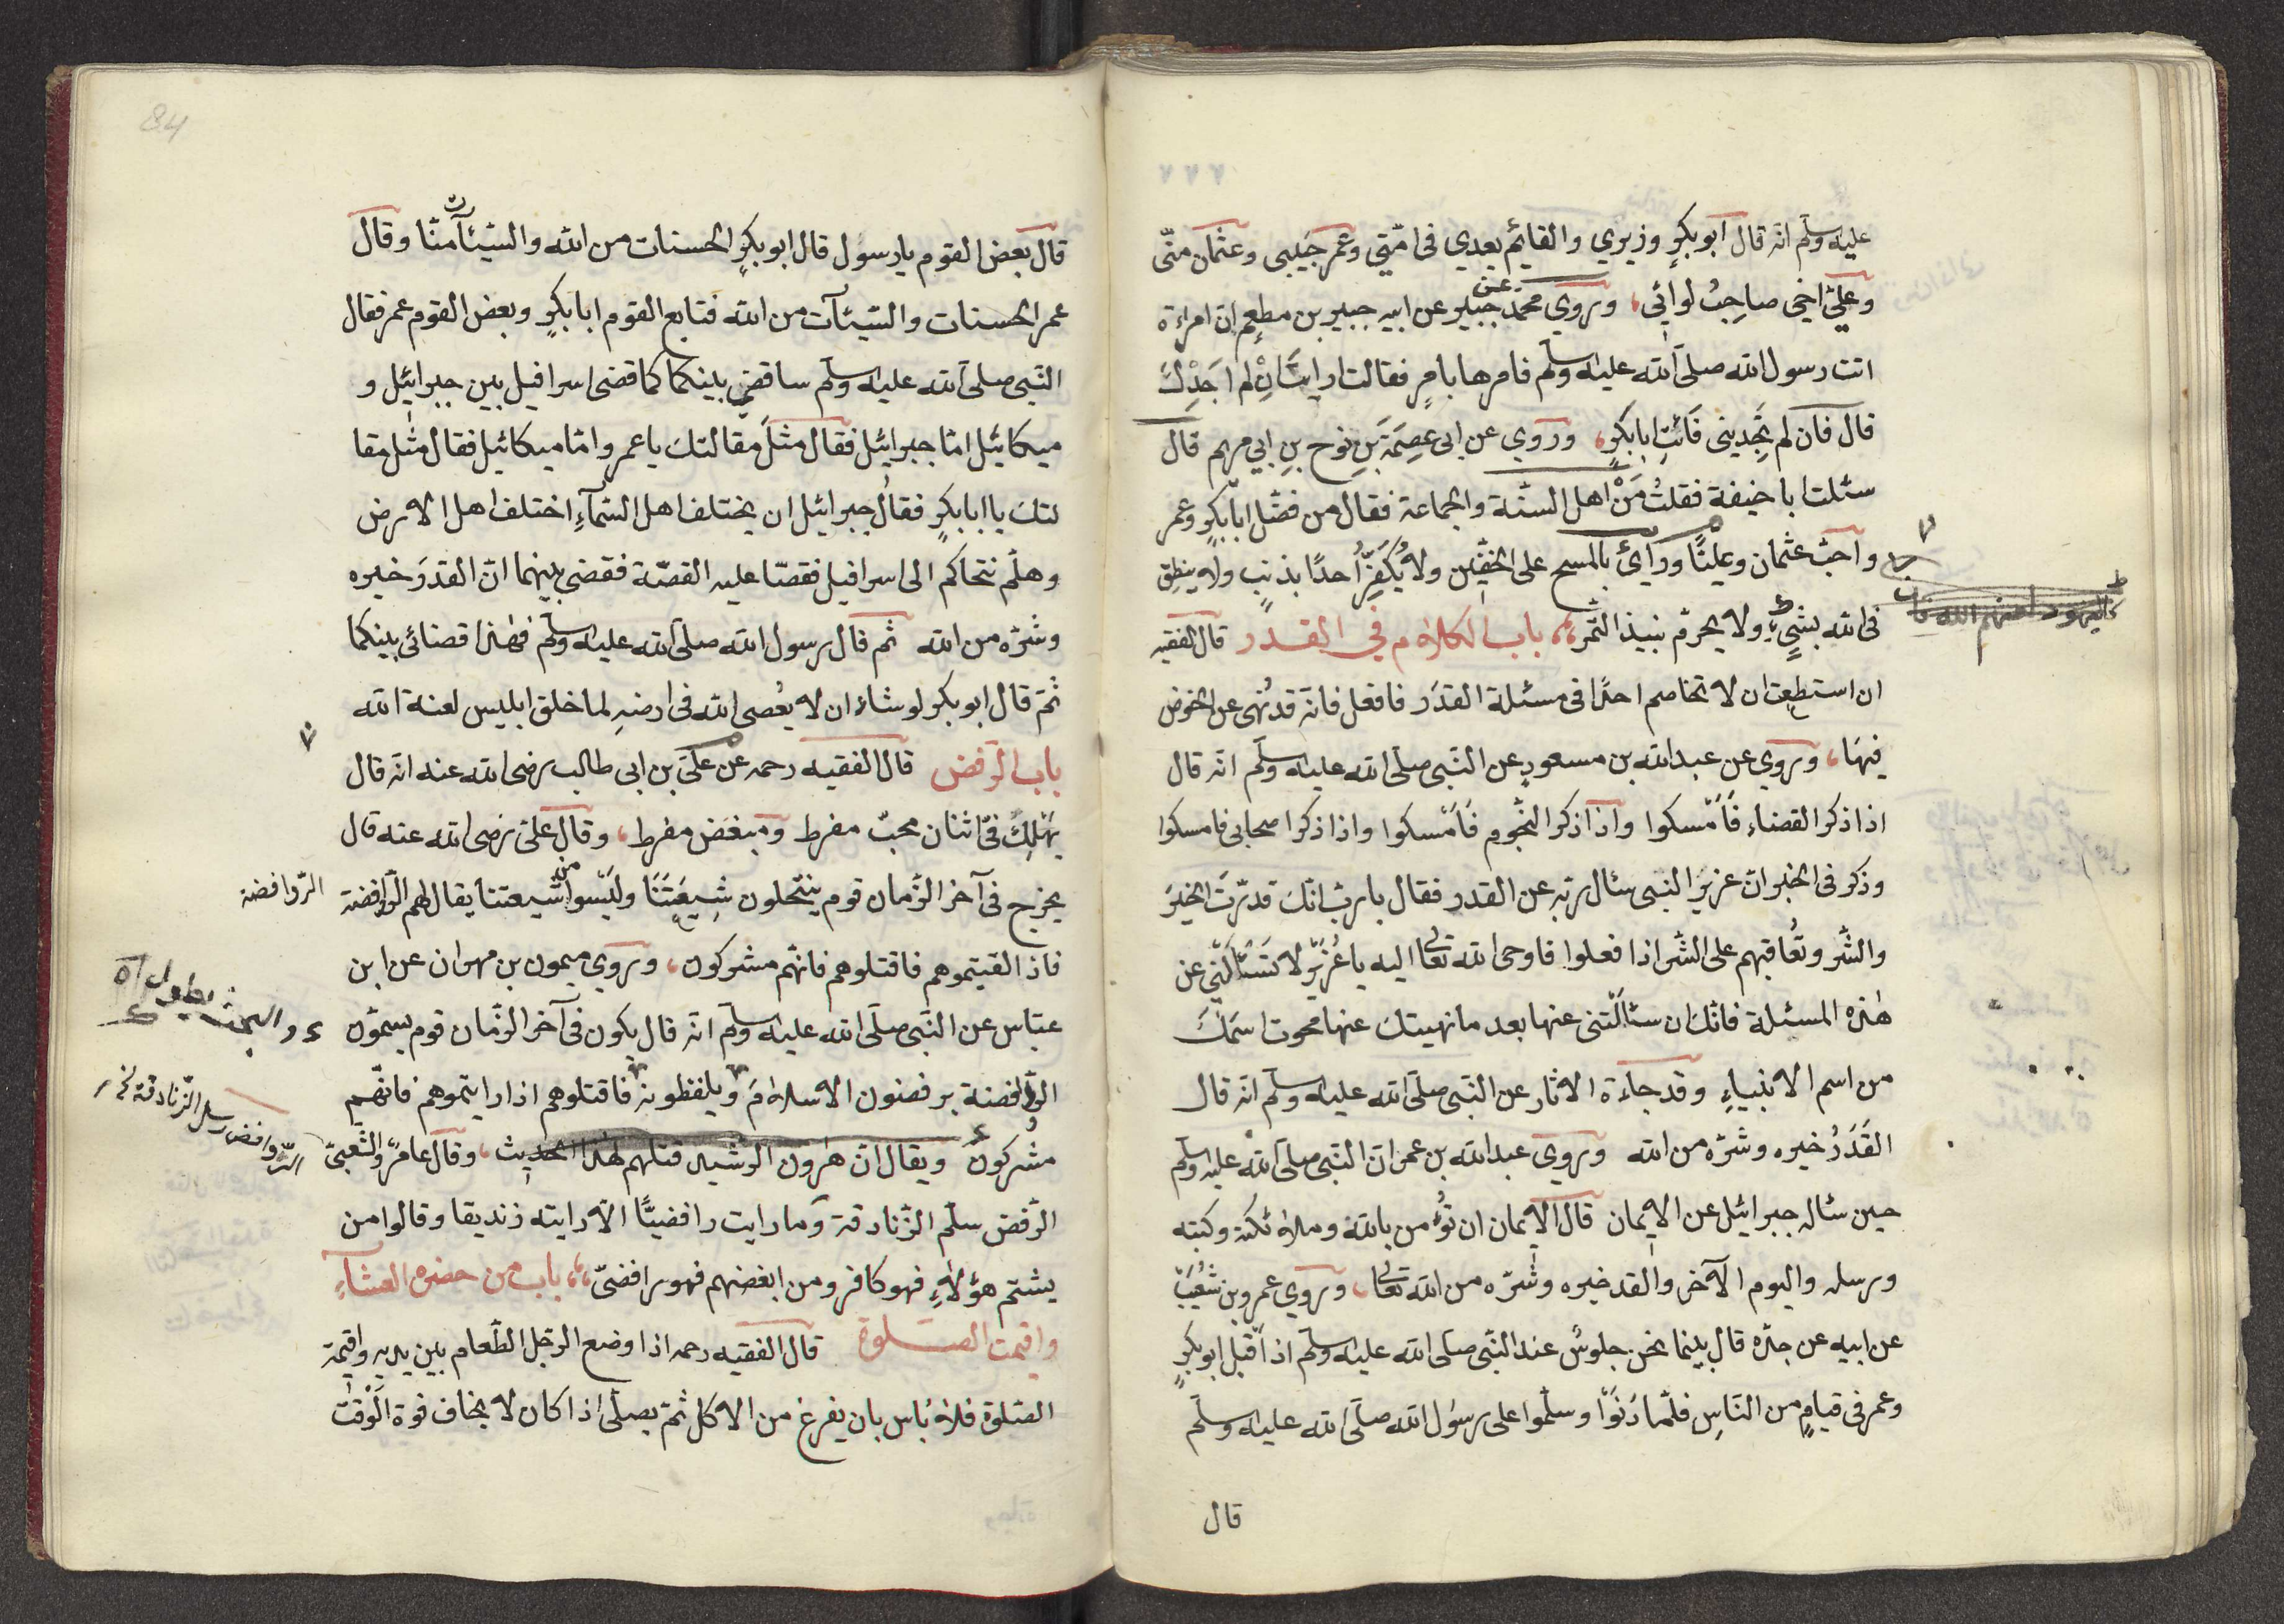 عليه وسلم انه قال ابو بكرٍ وزيري والقائم بعدي فى امّتي وعمر حبيبى وعثمان منّى
وعليّ اخي صاحِبُ لوائى، وروي محمد عن جبير عن ابيه جبير بن مطعِم ان امراءة
اتت رسول الله صلى الله عليه وسلم فامرها بامرٍ فقالت ارايتَ اِنْ لم اجَدِْكَ
قال فان لم تَجِدينى فَائتِ ابابكرٍ، وروي عن ابى عِصِمَةَ بَنِ نوح بنِ ابي مريم قال
سئلت اباحنيفة فقلتُ مَنْ اهل السنّة والجماعة فقال من فضّل ابابكرٍ وعمر
واحبّ عثمان وعليًّا ورأى بالمسح على الخفّين ولا يُكَفِّرُ احدًا بذنبٍ ولا ينطِق
فى الله بشيءٍ ولا يحرم نبيذ التمر، باب الكلام في القدر قال الفقيه
كاليهود لعنهم الله
ان استطعت ان لا تخاصم احدًا فى مسئلة القدَر فافعل فانه قد نُهى عن الخوض
فيهَا، وروي عن عبدالله بن مسعودٍ عن النّبى صلى الله عليه وسلّم انّه قال
اذا ذكر القضاء فَاَمْسكوا واذا ذكر النّجوم فَاَمْسكوا واذا ذكرا صحابى فامسكوا
وذكر فى الخبر انّ عزيرَ النبى سئال ربّه عن القدر فقال يارب انّكَ قدّرتَ الخيرَ
والشّر وتُعاقبهم على الشّر اذا فعلوا فاوحى الله تعالى اليه ياعُزَيْرُ لا تَسْئَالَنّى عن
هٰذه المسئلة فانّك ان سئالتنى عنها بعد مانهيتك عنها محوت اسمَكَ
من اسم الانبياءِ وقد جاءة الاثار عن النّبى صلى الله عليه وسلم انّه قال
القَدَرُ خيره وشرّه من الله وروى عبدالله بن عمر انّ النّبى صلى الله عليه وسلم
حين سئاله جبرائيل عن الايمان قال الايمان ان تؤمن بالله وملائكته وكتبه
ورسله واليوم الآخر والقد خيره وشرّه من الله تعالى، وروي عمرو بن شُعَيَب
عن ابيه عن جدّه قال بينما نحن جلوسُ عند النّبى صلى الله عليه وسلّم اذ اَقبل ابو بكرٍ
وعمر فى قيامٍ من النّاسِ فلمّا دَنَوْا وسلّموا على رسول الله صلّى الله عليه وسلم
قال
84
قال بعض القوم يارسول قال ابو بكرٍ الحسنات من الله والسّيّئآت منّا وقال
عمر الحسنات والسّيّئآت من الله فتابع القوم ابابكرٍ وبعض القوم عمر فقال
النّبى صلى الله عليه وسلم ساقضى بينكما كما قضى اسرافيل بين جبرائيل و
ميكائيل امّا جبرائيل فقال مثلَ مقالتك ياعمر وامّا ميكائيل فقال مثل مقا
لتك يا ابابكرٍ فقال جبرائيل ان يختلف اهل السّمآءِ اختلف اهل الارض
وهلّم نتحاكم الى اسرافيل فقصّا عليه القصّة فقضى بينهما انّ القدرَ خيره
وشرّه من الله ثم قال رسول الله صلى الله عليه وسلّم فهٰذا قضائى بينكما
ثمّ قال ابو بكر لو شاء ان لا يُعصى الله فى ارضهِ لما خلق ابليس لعنة الله
باب الرّفض قال الفقيه رحمه عن علىّ بن ابى طالب رضى الله عنه انّه قال
يَهْلِكُ فىّ اثنان محبّ مفرط ومبغض مفرط، وقال علىّ رضى الله عنه قال
يخرج فى آخر الزّمان قوم ينتحلون شِيعَتَنَا وليْسوا من شيعتنا يقال لهم الرّافضة
الرّوافضة
فاذ القيتموهم فاقتلوهم فانهم مشركون، وروي ميمون بن مهران عن ابن
عبّاس عن النّبى صلّى الله عليه وسلم انّه قال يكون فى آخر الزّمان قوم يسمّون
والبحث يطول اه
الرّافضة يرفضون الاسلامَ ويلفظونه فاقتلوهم اذا رايتموهم فانّهم
مشركون ويقال انّ هٰرون الرّشيد قتلهم لهٰذا الحديث، وقال عامرٌ والشّعبىّ
الرّوافض رسل الزّنادقة
الرّفض سلّم الزّنادقة وما رايت رافضيًّا الّا رايته زنديقا وقالوا من
يشتم هؤلآءِ فهو كافر ومن ابغضهم فهو رافضىّ، باب من حضره العشاءِ
واقيمت الصّلوة قال الفقيه رحمه اذا وضع الرّجل الطّعام بين يديه واقيمة
الصّلوة فلا بَاس بان يفرغ من الاكل ثمّ يصلّى اذا كان لا يخاف فوة الْوَقت